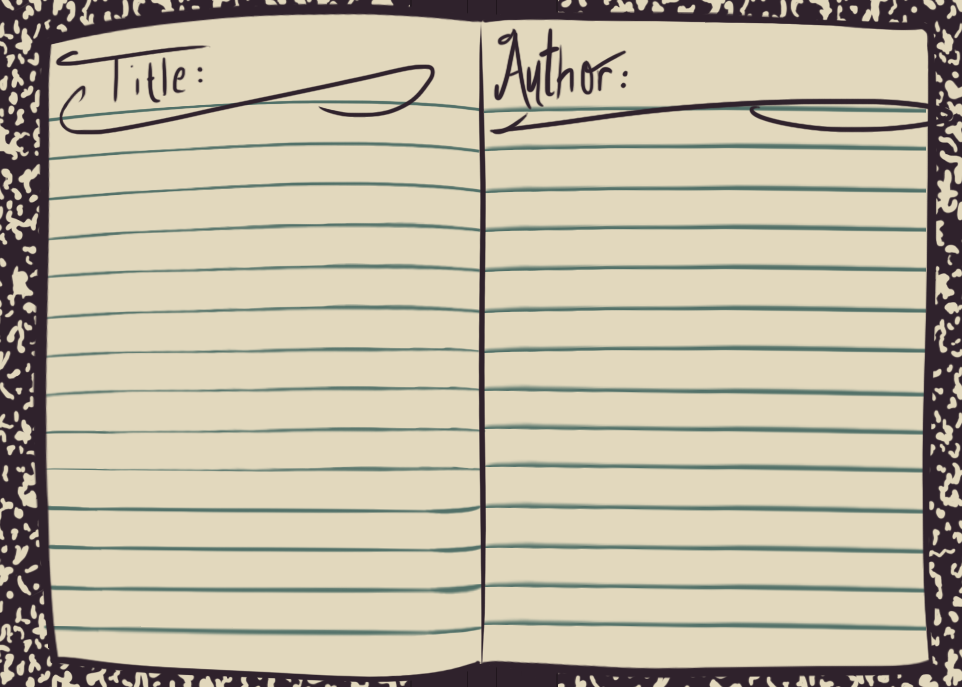 Title:
Author: